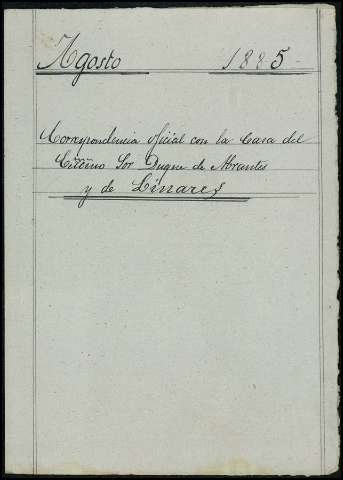 Agosto 1885
Correspondencia oficial con la Casa del
Excmo Sor Duque de Abrantes
y de Linares